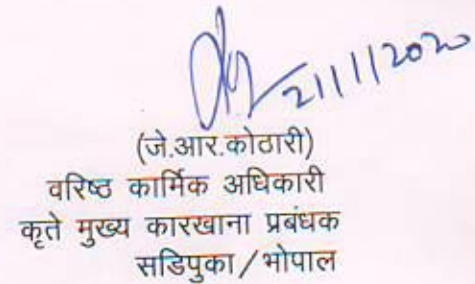 21/1/2020
(जे.आर.कोठारी)
वरिष्ठ कार्मिक अधिकारी
कृते मुख्य कारखाना प्रबंधक
सडिपुका/भोपाल